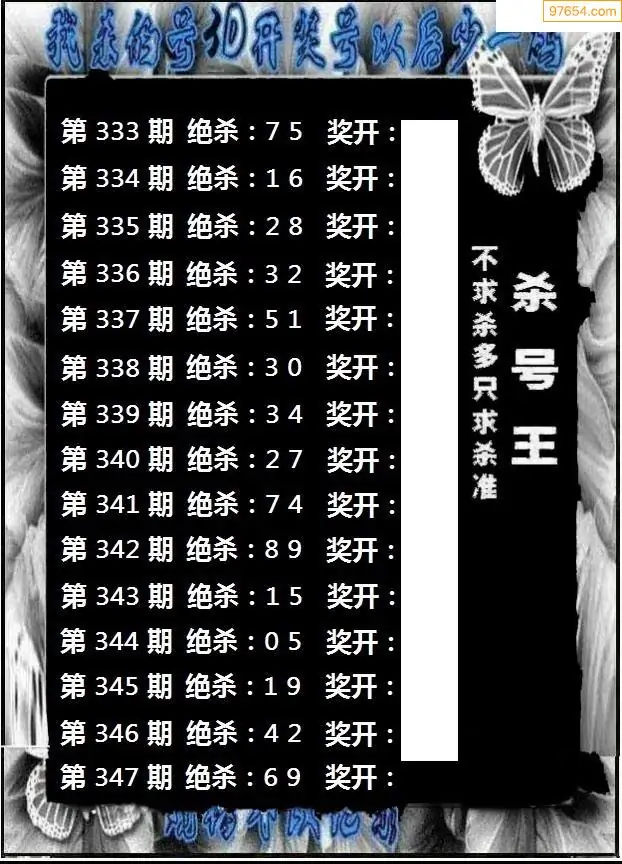 97654.com
我来的号3D开奖号以后少一码
第 333 期 绝杀：7 5 奖开：
第 334 期 绝杀：1 6 奖开：
第 335 期 绝杀：2 8 奖开：
第 336 期 绝杀：3 2 奖开：
第 337 期 绝杀：5 1 奖开：
第 338 期 绝杀：3 0 奖开：
第 339 期 绝杀：3 4 奖开：
第 340 期 绝杀：2 7 奖开：
第 341 期 绝杀：7 4 奖开：
第 342 期 绝杀：8 9 奖开：
第 343 期 绝杀：1 5 奖开：
第 344 期 绝杀：0 5 奖开：
第 345 期 绝杀：1 9 奖开：
第 346 期 绝杀：4 2 奖开：
第 347 期 绝杀：6 9 奖开：
杀号王
不求杀多只求杀准